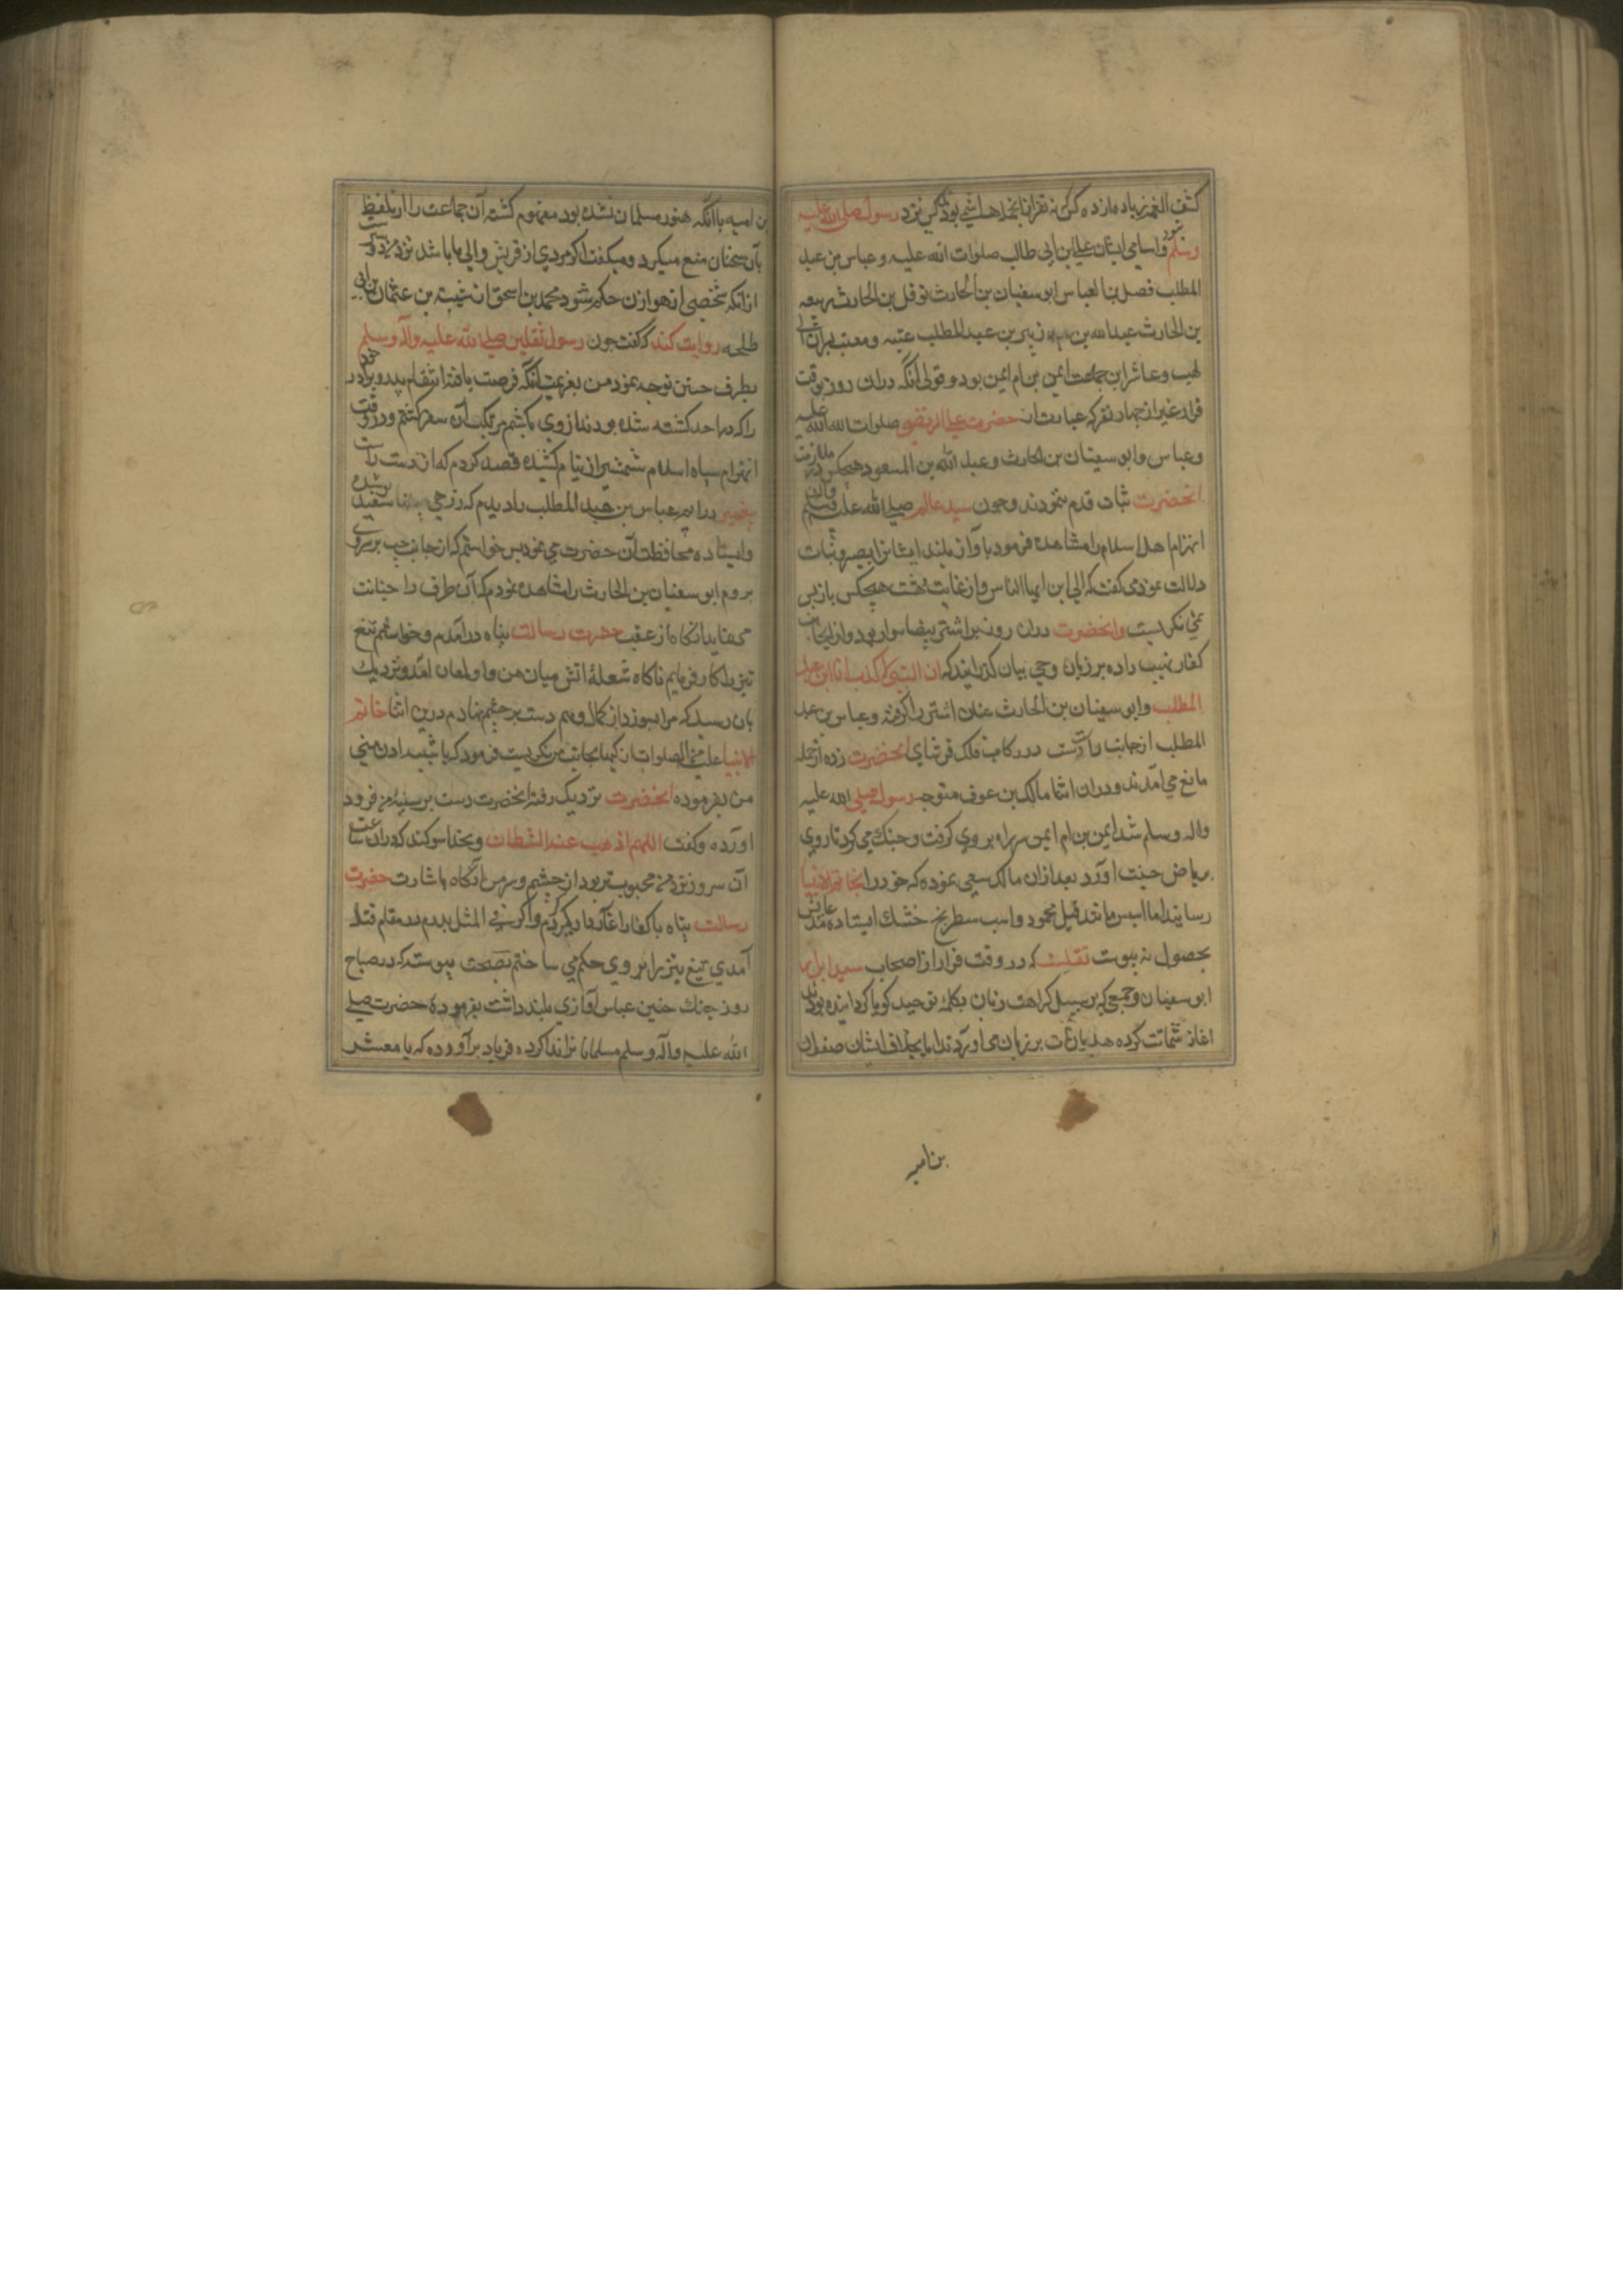 کشف الغمه زیاده از ده کس نه نفر از آنجمله هاشمی بود کس نزد رسول صلی الله علیه
وسلم و اسامی ایشان علی ابن ابی طالب صلوات الله علیه و عباس بن عبد
المطلب فضل بن العباس ابو سفیان بن الحارث نوفل بن الحارث ربیعه
بن الحارث عبدالله بن زبیر بن عبد المطلب عتبه و معتب پسران ابی
لهب و عاشر این جماعت ایمن بن ام ایمن بود و قولی آنکه دران روز بوقت
فرار غیر از چهار نفر که عبارت از حضرت علی المرتضی صلوات الله علیه
و عباس و ابو سفیان بن الحارث و عبد الله بن المسعود هیچکس در ملازمت
انحضرت ثبات قدم ننمودند و چون سید عالم صلی الله علیه وآله وسلم
انهزام اهل اسلام را مشاهده فرمود باواز بلند ایشانرا بصبر و ثبات
دلالت نمود می گفت که الی این ایها الناس و از غایت دهشت هیچکس باز پس
نمی نگریست و انحضرت دران روز بر اشتر بیضا سوار بود و از انجانب
کفار نهیب داده بر زبان وحی بیان گذرانید که ان النبی لا کذب انا ابن عبد
المطلب و ابو سفیان بن الحارث عنان اشتر را گرفته و عباس بن عبد
المطلب از جانب راست در رکاب فلک فرسای انحضرت زده از حمله
مانع می امدند و دران اثنا مالک بن عوف متوجه رسول صلی الله علیه
واله وسلم شد ایمن بن ام ایمن سر راه بر وی گرفت و جنک می کرد تا روی
بریاض جنت آورد بعد ازان مالک سعی نموده که خود را بخاتم الانبیا
رساند اما اسپش مانند فیل محمود و اسب سطرنج خشک ایستاده
بحصول نه پیوست نقلست که در وقت فرار از اصحاب سید ابرار
ابو سفیان و جمعی که بر سبیل کراهت زبان بکلمه توحید گویا گردانیده بودند
اغاز شماتت کرده هذیانات بر زبان می اوردند اما بخلاف ایشان صفوان
بن امیه
بن امیه با آنکه هنوز مسلمان نشده بود مغموم گشته آن جماعت را از تلفیظ
بآن سخنان منع میکرد و میگفت اگر مردی از قریش والی ما باشد نزد من دوستر
ازانکه شخصی از هوازن حکم شود محمد بن اسحق از شیبه بن عثمان بن ابی
طلحه روایت کند که گفت چون رسول ثقلین صلی الله علیه وآله وسلم
بطرف حنین توجه نمود من بعزیمت آنکه فرصت یافته انتقام پدر و برادر خود
را که در احد کشته شده بودند از وی بکشم مرتکب آن سفر گشتم و در وقت
انهزام سپاه اسلام شمشیر از نیام کشیده قصد کردم که از دست راست
پیغمبر درایم عباس بن عبد المطلب را دیدم که زرهی سفید پوشیده
و ایستاده محافظت آن حضرت می نمود پس خواستم که از جانب چپ بر سر وی
بروم ابو سفیان بن الحارث را مشاهده نمودم که آن طرف را حیانت
می نماید انکاه از عقب حضرت رسالت پناه درآمدم و خواستم تیغ
تیز را کار فرمایم ناکاه شعله اتش میان من و او لمعان امد و نزدیک
بان رسید که مرا بسوزد از کمال وهم دست بر چشم نهادم درین اثنا خاتم
الانبیا علیه من الصلوات ازکیها بجانب من نگریست فرمود که یا شیبه ادن منی
من بفرموده انحضرت نزدیک رفته انحضرت دست بر سینه من فرود
اورده و گفت اللهم اذهب عنه الشیطان و بخدا سوکند که دران ساعت
آن سرور نزد من محبوبتر بود از چشم و سر من انگاه باشارت حضرت
رسالت پناه با کفار اغاز دار و گیر کردم و اگر فی المثل پدرم در مقام قتال
آمدی تیغ تیز را بر وی حکم می ساختم بصحت پیوسته که در صباح
روز جنک حنین عباس آوازی بلند داشت بفرموده حضرت صلی
الله علیه وآله وسلم مسلمانانرا ندا کرده فریاد برآورده که یا معشر